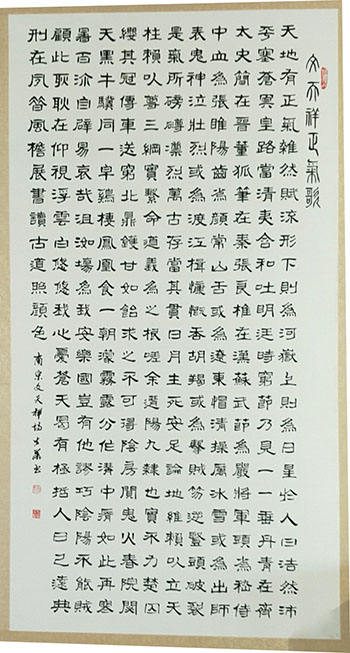 文天祥正氣歌
天地有正氣雜然賦流形下則為河嶽上則為日星於人曰浩然沛
乎塞蒼冥皇路當清夷含和吐明廷時窮節乃見一一垂丹青在齊
太史簡在晉董狐筆在秦張良椎在漢蘇武節為嚴將軍頭為嵇侍
中血為張睢陽齒為顏常山舌或為遼東帽清操厲冰雪或為出師
表鬼神泣壯烈或為渡江楫慷慨吞胡羯或為擊賊笏逆豎頭破裂
是氣所磅礴凜烈萬古存當其貫日月生死安足論地維賴以立天
柱賴以尊三綱實繫命道義為之根嗟余遘陽九隸也實不力楚囚
纓其冠傳車送窮北鼎鑊甘如飴求之不可得陰房闃鬼火春院閟
天黑牛驥同一皁雞棲鳳凰食一朝濛霧露分作溝中瘠如此再寒
暑百沴自辟易哀哉沮洳場為我安樂國豈有他謬巧陰陽不能賊
顧此耿耿在仰視浮雲白悠悠我心憂蒼天曷有極哲人日已遠典
刑在夙昔風檐展書讀古道照顏色 南宋文天祥詩 書